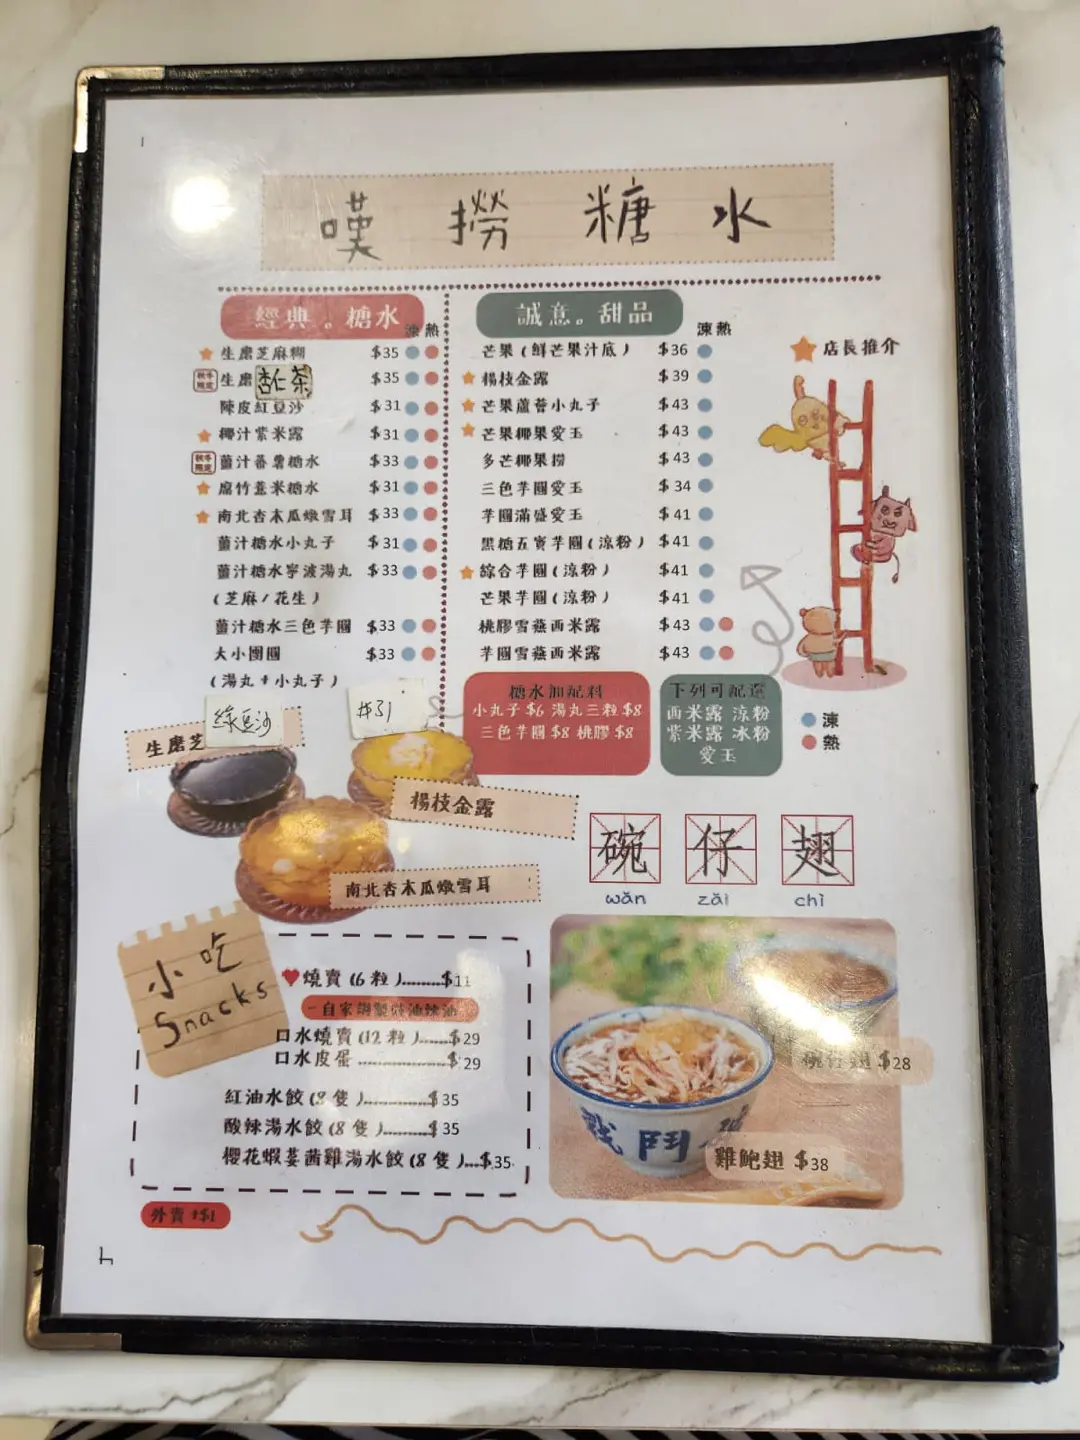 嘆 撈 糖 水
經典。糖水
凍 熱
生磨芝麻糊 $35
秋冬限定 生磨杏仁茶 $35
陳皮紅豆沙 $31
椰汁紫米露 $31
秋冬限定 薑汁番薯糖水 $33
腐竹薏米糖水 $31
南北杏木瓜燉雪耳 $33
薑汁糖水小丸子 $31
薑汁糖水寧波湯丸 $33
(芝麻/花生)
薑汁糖水三色芋圓 $33
大小團圓 $33
(湯丸+小丸子)
綠豆沙
#31
誠意。甜品
凍 熱
芒果(鮮芒果汁底) $36
楊枝金露 $39
芒果蘆薈小丸子 $43
芒果椰果愛玉 $43
多芒椰果撈 $43
三色芋圓愛玉 $34
芋圓滿盛愛玉 $41
黑糖五寶芋圓(涼粉) $41
綜合芋圓(涼粉) $41
芒果芋圓(涼粉) $41
桃膠雪燕西米露 $43
芋圓雪燕西米露 $43
店長推介
糖水加配料
小丸子 $6 湯丸三粒 $8
三色芋圓 $8 桃膠 $8
下列可配選
西米露 涼粉
紫米露 冰粉
愛玉
凍
熱
生磨芝
楊枝金露
南北杏木瓜燉雪耳
碗 仔 翅
wǎn zǎi chì
小吃
Snacks
燒賣(6粒)........$11
口水燒賣(12粒)......$29
口水皮蛋................$29
紅油水餃(8隻)............$35
酸辣湯水餃(8隻).........$35
櫻花蝦薑茜雞湯水餃(8隻)...$35
碗仔翅 $28
戰鬥
雞鮑翅 $38
外賣 +$1